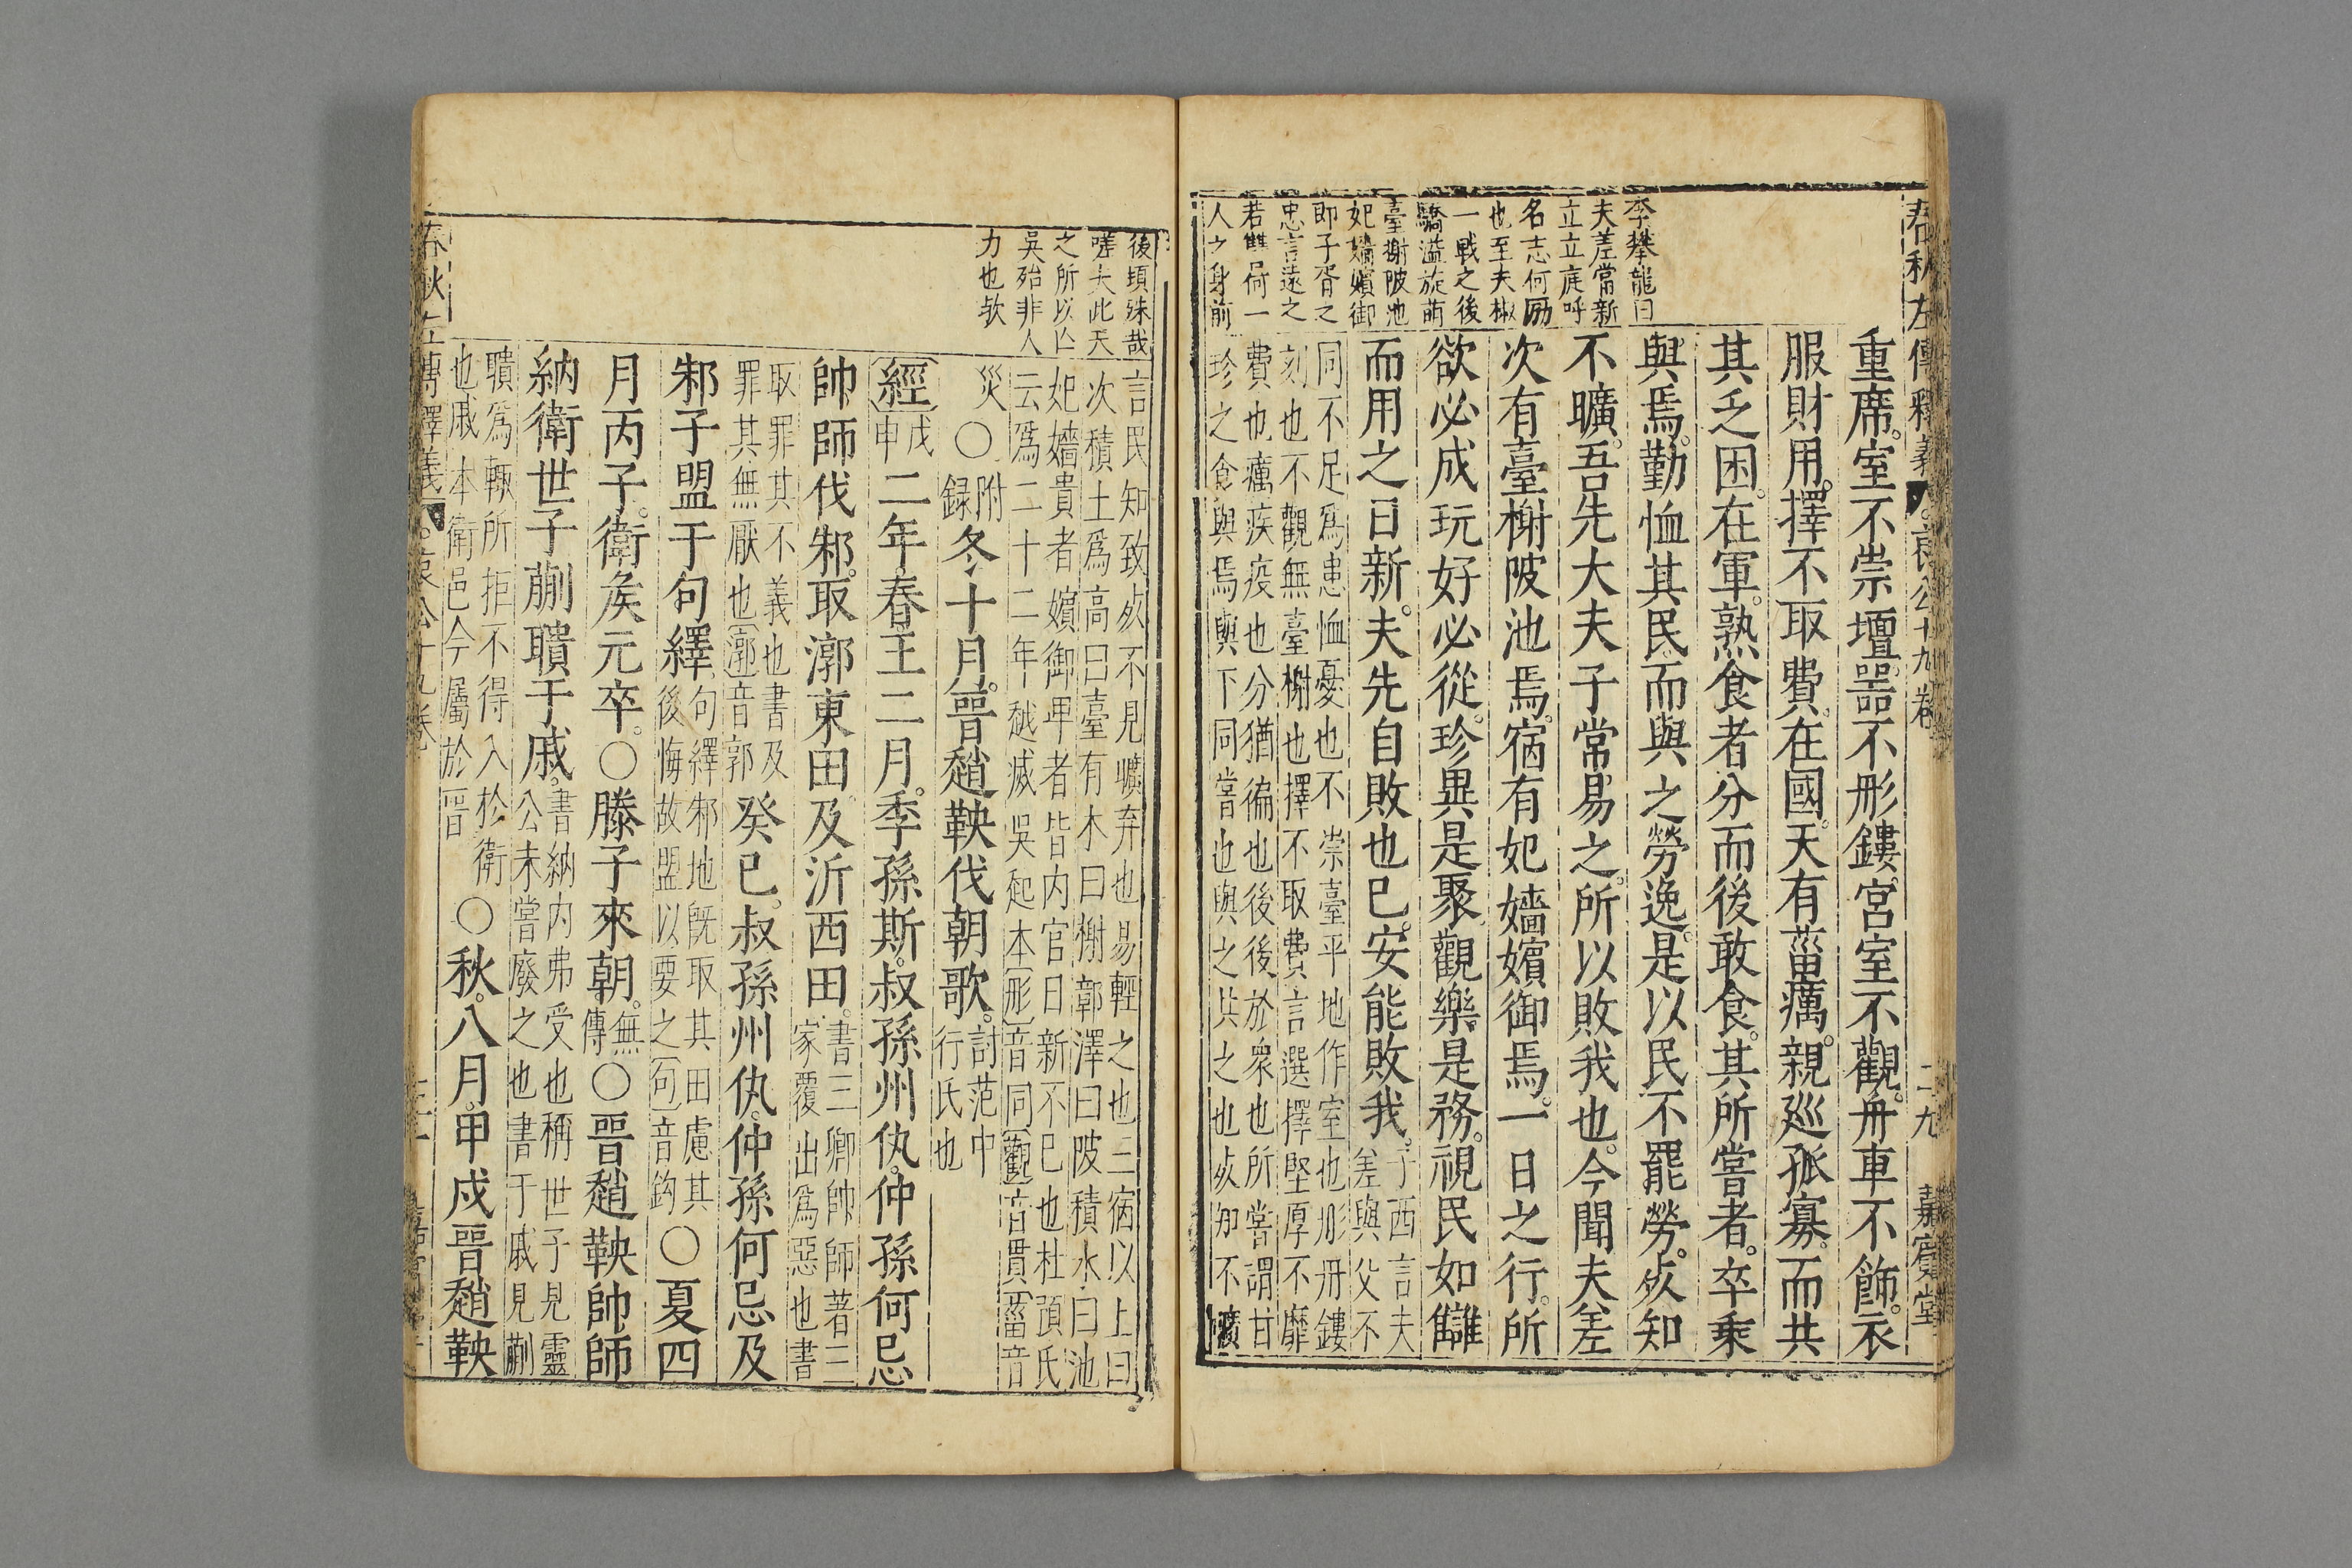 春秋左傳釋義 哀公十九卷 二十九 嘉賓堂
李攀龍曰
夫差常新
立立庭呼
名志何勵
也至夫椒
一戰之後
驕溢旋萌
臺榭陂池
妃嬙嬪御
即子胥之
忠言遠之
若讐何一
人之身前
重席。室不崇壇。器不彤鏤。宮室不觀。舟車不飾。衣
服財用。擇不取費。在國。天有菑癘。親巡孤寡。而共
其乏困。在軍。熟食者分而後敢食。其所嘗者。卒乘
與焉。勤恤其民。而與之勞逸。是以民不罷勞。死知
不曠。吾先大夫子常易之。所以敗我也。今聞夫差
次有臺榭陂池焉。宿有妃嬙嬪御焉。一日之行。所
欲必成。玩好必從。珍異是聚。觀樂是務。視民如讎
而用之日新。夫先自敗也已。安能敗我。子西言夫
差與父不
同不足爲患恤憂也不崇臺平地作室也彤丹鏤
刻也不觀無臺榭也擇不取費言選擇堅厚不靡
費也癘疾疫也分猶徧也後後於衆也所嘗謂甘
珍之食與焉與下同嘗也與之共之也死知不曠
後頓殊哉
嗟夫此天
之所以亡
吳殆非人
力也歟
言民知致死不見曠弃也易輕之也三宿以上曰
次積土爲高曰臺有木曰榭鄣澤曰陂積水曰池
妃嬙貴者嬪御卑者皆内官日新不已也杜預氏
云爲二十二年越滅吳起本彤音同觀音貫菑音
災〇附
録冬十月。晉趙鞅伐朝歌。討范中
行氏也
經戊
申二年。春。王二月。季孫斯。叔孫州仇。仲孫何忌
帥師伐邾。取漷東田及沂西田。書三卿帥師著三
家覆出爲惡也書
取罪其不義也書及
罪其無厭也漷音郭癸巳。叔孫州仇。仲孫何忌及
邾子盟于句繹。句繹邾地既取其田慮其
後悔故盟以要之句音鈎〇夏四
月丙子。衛矦元卒。〇滕子來朝。無
傳〇晉趙鞅帥師
納衛世子蒯聵于戚。書納内弗受也稱世子見靈
公未嘗廢之也書于戚見蒯
聵爲輒所拒不得入於衛
也戚本衛邑今屬於晉〇秋。八月。甲戌晉趙鞅
春秋左傳釋義 哀公十九卷